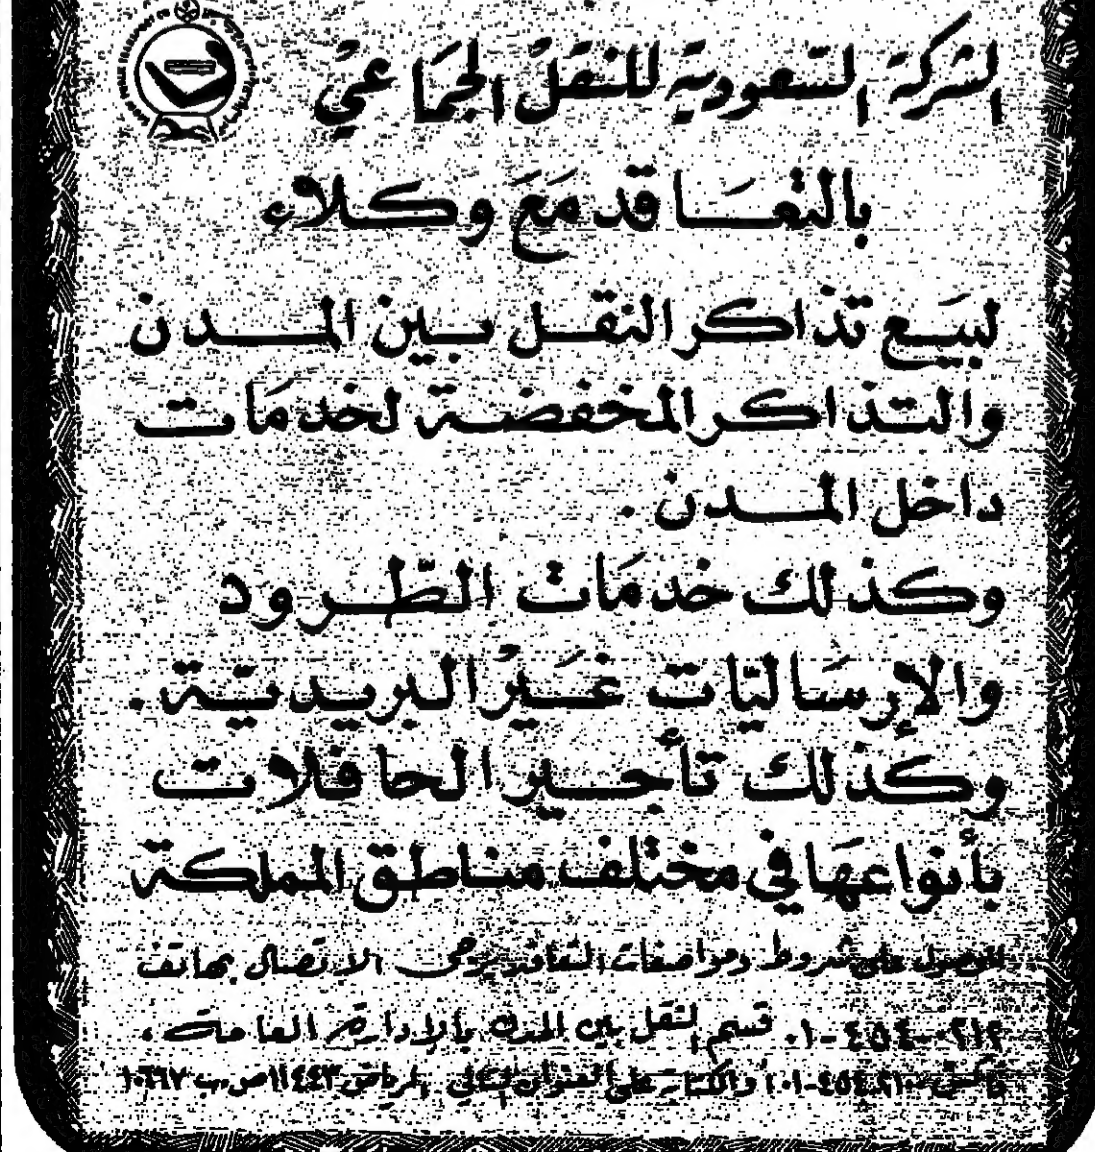 الشركة السعودية للنقل الجماعي
بالتعاقد مع وكلاء
لبيع تذاكر النقل بين المدن
والتذاكر المخفضة لخدمات
داخل المدن .
وكذلك خدمات الطرود
والإرساليات غير البريدية .
وكذلك تأجير الحافلات
بأنواعها في مختلف مناطق المملكة
للحصول على شروط ومواصفات التعاقد يرجى الاتصال بهاتف
قسم النقل بين المدن بالإدارة العامة ،
على العنوان التالي الرياض ١١٤٤٣ ص.ب ١٠٦٦٧